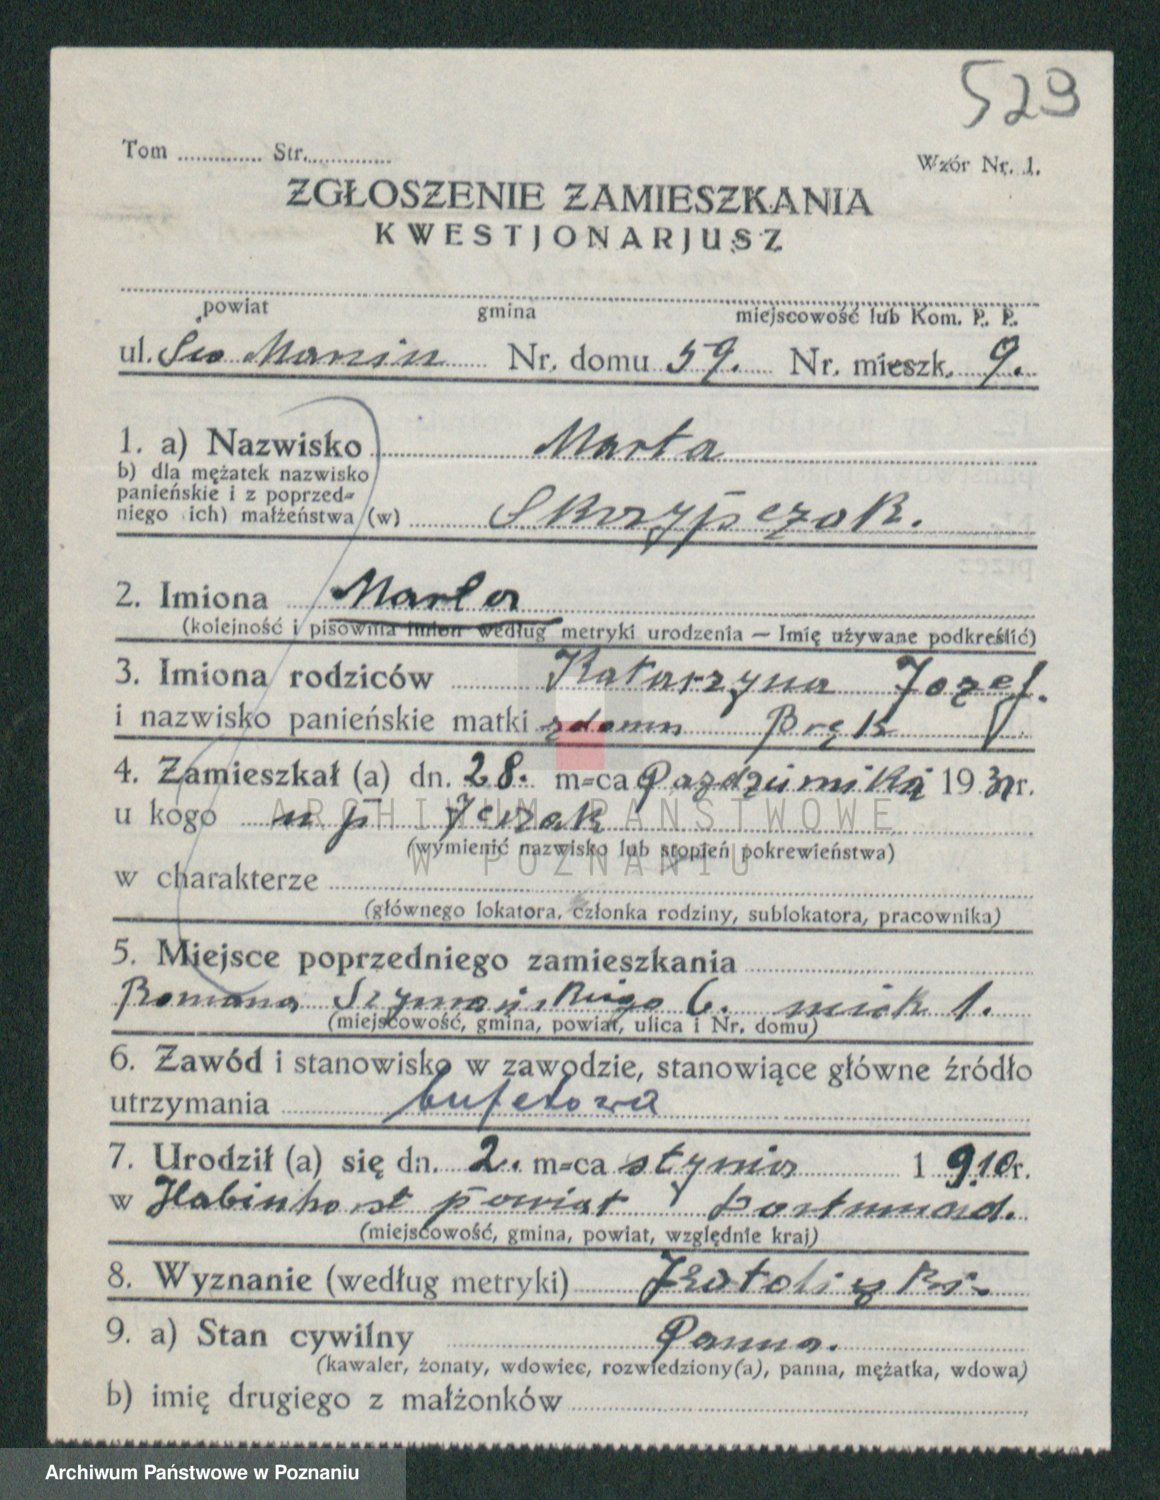 529
Tom ............. Str..............
Wzór Nr. 1.
ZGŁOSZENIE ZAMIESZKANIA
KWESTJONARJUSZ
powiat gmina miejscowość lub Kom. P. P.
ul. Św Marcin Nr. domu 59. Nr. mieszk. 9.
1. a) Nazwisko Marta
b) dla mężatek nazwisko
panieńskie i z poprzed-
niego (ich) małżeństwa (w) Skrzypczak.
2. Imiona Marta
(kolejność i pisownia imion według metryki urodzenia — Imię używane podkreślić)
3. Imiona rodziców Katarzyna Jozef.
i nazwisko panieńskie matki zdomu Bręk
4. Zamieszkał (a) dn. 28. m-ca Pazdziernika 193 r.
u kogo u p
ARCHIWUM PAŃSTWOWE
W POZNANIU
(wymienić nazwisko lub stopień pokrewieństwa)
w charakterze
(głównego lokatora, członka rodziny, sublokatora, pracownika)
5. Miejsce poprzedniego zamieszkania
Romana Szymańskiego 6. miek 1.
(miejscowość, gmina, powiat, ulica i Nr. domu)
6. Zawód i stanowisko w zawodzie, stanowiące główne źródło
utrzymania bufetowa
7. Urodził (a) się dn. 2. m-ca stynia 1 910 r.
w Habinhorst powiat Dortmund.
(miejscowość, gmina, powiat, względnie kraj)
8. Wyznanie (według metryki) Katolizki.
9. a) Stan cywilny Panna.
(kawaler, żonaty, wdowiec, rozwiedziony(a), panna, mężatka, wdowa)
b) imię drugiego z małżonków
Archiwum Państwowe w Poznaniu